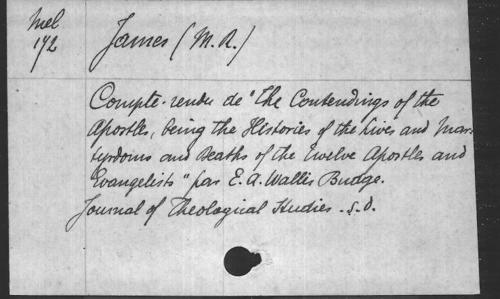 Mel
172
James (M.R.)
Compte-rendu de "The Contendings of the
Apostles, being the Histories of the Lives and Mar-
tyrdoms and Deaths of the Twelve Apostles and
Evangelists" par E.A. Wallis Budge.
Journal of Theological Studies. s.d.